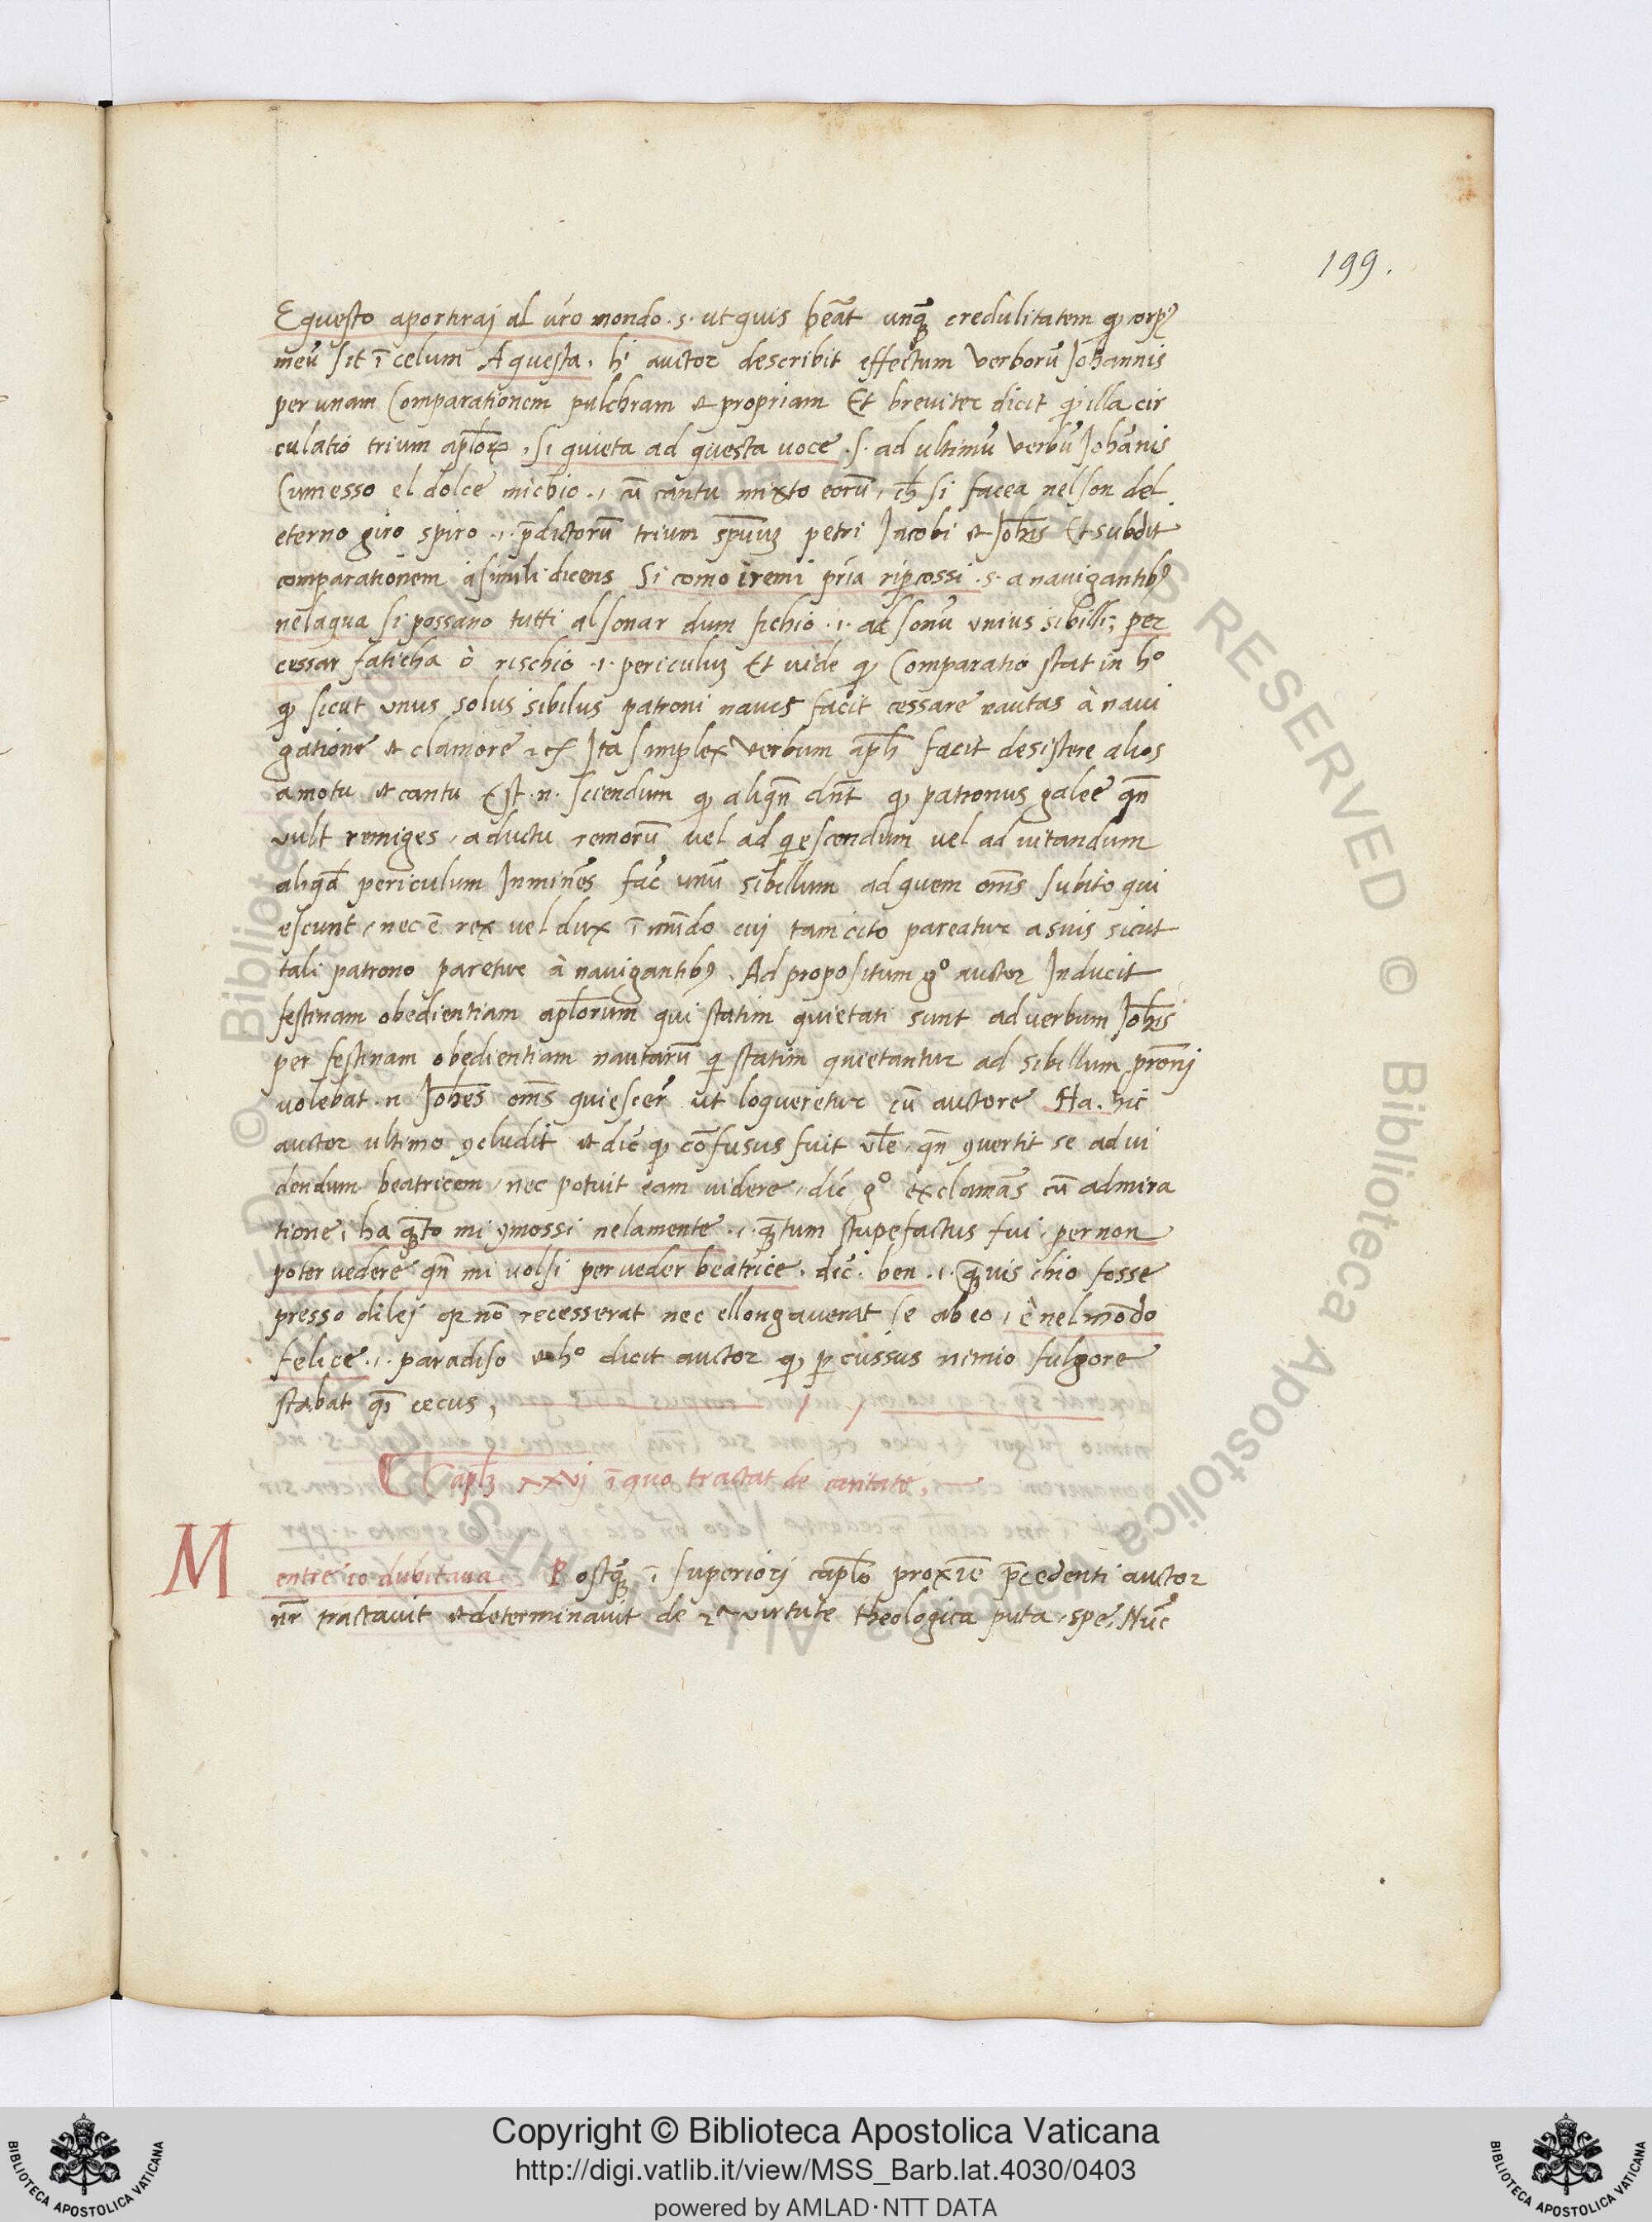 199.
E questo aportiraj al vr̃o mondo .s. ut quis heãt unq̃ꝫ credulitatem ꝙ corpꝰ
meũ sit ĩ celum A questa. hⁱ auctor describit effectum verborũ Johannis
per unam Comparationem pulchram et propriam Et breviter dicit ꝙ illa cir
culatio trium apl̃orꝝ, si quieta ad questa voce .s. ad ultimũ verbũ Johãnis
Cum esso el dolce michio .i. cũ cantu mixto eorũ, ch̃ si facea nel son del
eterno giro spiro .i. p̃dictorũ trium sp̃uuꝫ petri Jacobi et Joh̃is Et subdit
comparationem a simili dicens Si como i remi pria ripcossi .s. a navigantibꝰ
nelaqua si possano tutti al sonar dum fichio .i. ad sonũ unius sibilli; per
cessar faticha ò rischio .i. periculuꝫ Et vide ꝙ Comparatio stat in hº
ꝙ sicut unus solus sibilus patroni navis facit cessare nautas à navi
gatione et clamore Ita simplex verbum apl̃i facit desistere alios
a motu et cantu Est .n. sciendum ꝙ aliqñ dñt ꝙ patronus galee qñ
vult remiges, a ductu remorũ vel ad qiescendum vel ad vitandum
aliqd̃ periculum Inminẽs fac̃ unũ sibillum ad quem om̃s subito qui
escunt, nec ẽ rex vel dux ĩ mũdo cuj tam cito pareatur a suis sicut
tali patrono paretur à navigantibꝰ. Ad propositum gº auctor Inducit
festinam obedientiam apl̃orum qui statim quietati sunt ad verbum Joh̃is
per festinam obedientiam nautarũ qi statim quietantur ad sibillum prõnj
volebat .n. Joh̃es om̃s quiescer̃ ut loqueretur cũ auctore Ha. hic
auctor ultimo ꝯcludit et dic̃ ꝙ cõfusus fuit vl̃e qñ ꝯvertit se ad vi
dendum beatricem, nec potuit eam videre, dic̃ gº exclamãs cũ admira
tione, ha qꝫ̃to mi ꝯmossi nelamente .i. qꝫ̃tum stupefactus fui, per non
poter vedere qñ mi volsi per veder beatrice. dic̃. ben .i. qꝫ̃vis chio fosse
presso di lej qꝛ nõ recesserat nec ellongaverat se ab eo, è nel mõdo
felice .i. paradiso et hº dicit auctor ꝙ ꝑcussus nimio fulgore
stabat q̃i cecus,
Capl̃ꝫ xxvj ĩ quo tractat de caritate,
Mentre io dubitava Postq̃ꝫ ĩ superiorj capl̃o proxĩe p̃cedenti auctor
nr̃ tractavit et determinavit de 2ª virtute theologica puta, spe, Nũc
Copyright © Biblioteca Apostolica Vaticana
http://digi.vatlib.it/view/MSS_Barb.lat.4030/0403
powered by AMLAD·NTT DATA